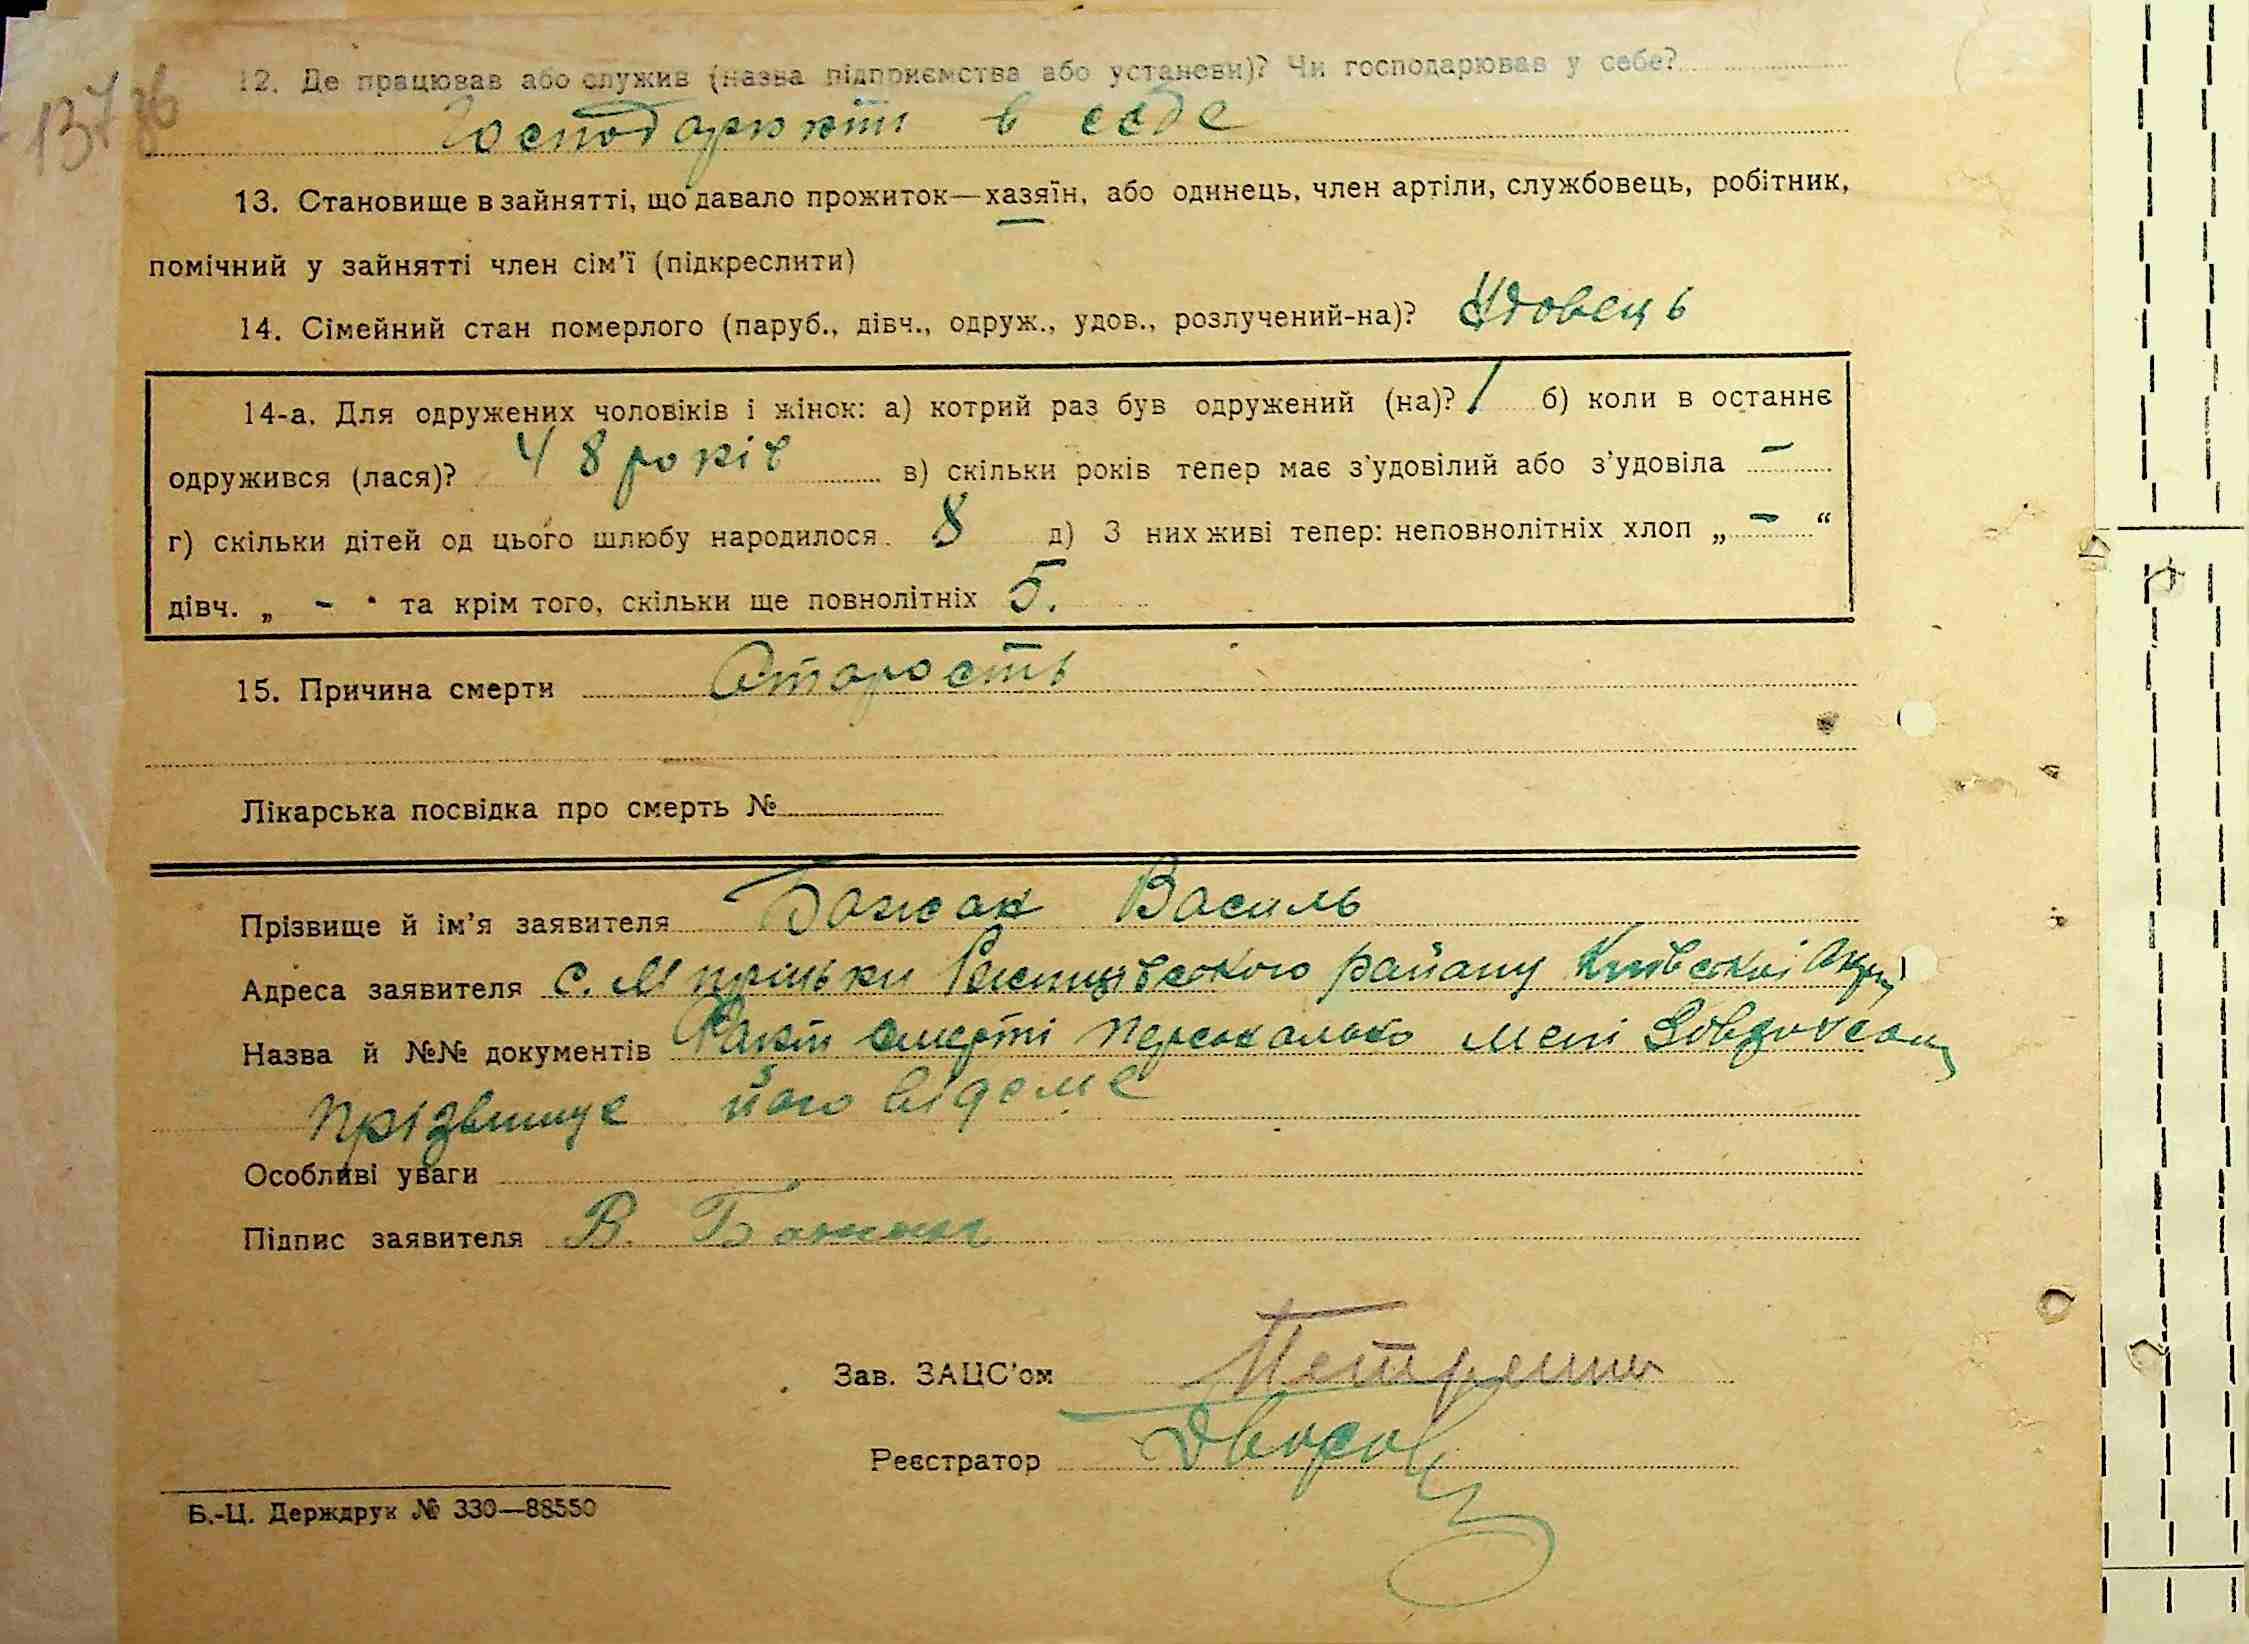 137 зв
12. Де працював або служив (назва підприємства або установи)? Чи господарював у себе?
Господарює в себе
13. Становище в зайнятті, що давало прожиток—хазяїн, або одинець, член артіли, службовець, робітник,
помічний у зайнятті член сім'ї (підкреслити)
14. Сімейний стан померлого (паруб., дівч., одруж., удов., розлучений-на)? Удовець
14-а. Для одружених чоловіків і жінок: а) котрий раз був одружений (на)? 1 б) коли в останнє
одружився (лася)? 48 років в) скільки років тепер має з'удовілий або з'удовіла —
г) скільки дітей од цього шлюбу народилося 8 д) З них живі тепер: неповнолітніх хлоп „ — “
дівч. „ - “ та крім того, скільки ще повнолітніх 5.
15. Причина смерти Старость
Лікарська посвідка про смерть №
Прізвище й ім'я заявителя Божок Василь
Адреса заявителя с. району Київської
Назва й №№ документів Факт смерті персонально мені
прізвище його відоме
Особливі уваги
Підпис заявителя В. Божок
Зав. ЗАЦС'ом Петренко
Реєстратор
Б.-Ц. Держдрук № 330—88550